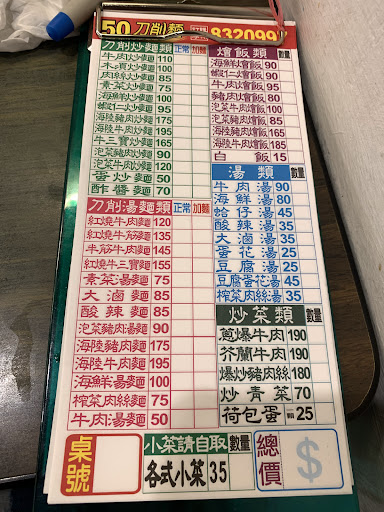 50 刀削麵 832099
刀削炒麵類 正常 加麵
牛肉炒麵 110
木須炒麵 100
肉絲炒麵 85
素菜炒麵 75
海鮮炒麵 100
蝦仁炒麵 100
海陸豬肉炒麵 175
海陸牛肉炒麵 195
牛三寶炒麵 165
泡菜豬肉炒麵 100
泡菜牛肉炒麵 120
蛋炒麵 50
酢醬麵 70
刀削湯麵類 正常 加麵
紅燒牛肉麵 120
紅燒牛筋麵 135
半筋牛肉麵 145
紅燒牛三寶麵 155
素菜湯麵 75
肉絲湯麵 85
大滷麵 85
酸辣麵 85
泡菜豬肉湯麵 90
海陸豬肉湯麵 175
海陸牛肉湯麵 195
海鮮湯麵 100
榨菜肉絲麵 75
牛肉湯麵 50
燴飯類 數量
海鮮燴飯 90
蝦仁燴飯 90
牛肉燴飯 95
豬肉燴飯 80
泡菜豬肉燴飯 85
泡菜牛肉燴飯 100
海陸豬肉燴飯 165
海陸牛肉燴飯 185
白飯 15
湯類 數量
牛肉湯 90
海鮮湯 80
蛤仔湯 45
酸辣湯 35
大滷湯 35
蛋花湯 25
豆腐湯 25
豆腐蛋花湯 45
榨菜肉絲湯 35
炒菜類 數量
蔥爆牛肉 190
芥蘭牛肉 190
爆炒豬肉 180
炒青菜 70
荷包蛋 25
桌號
小菜請自取 數量
各式小菜 35
總價 $